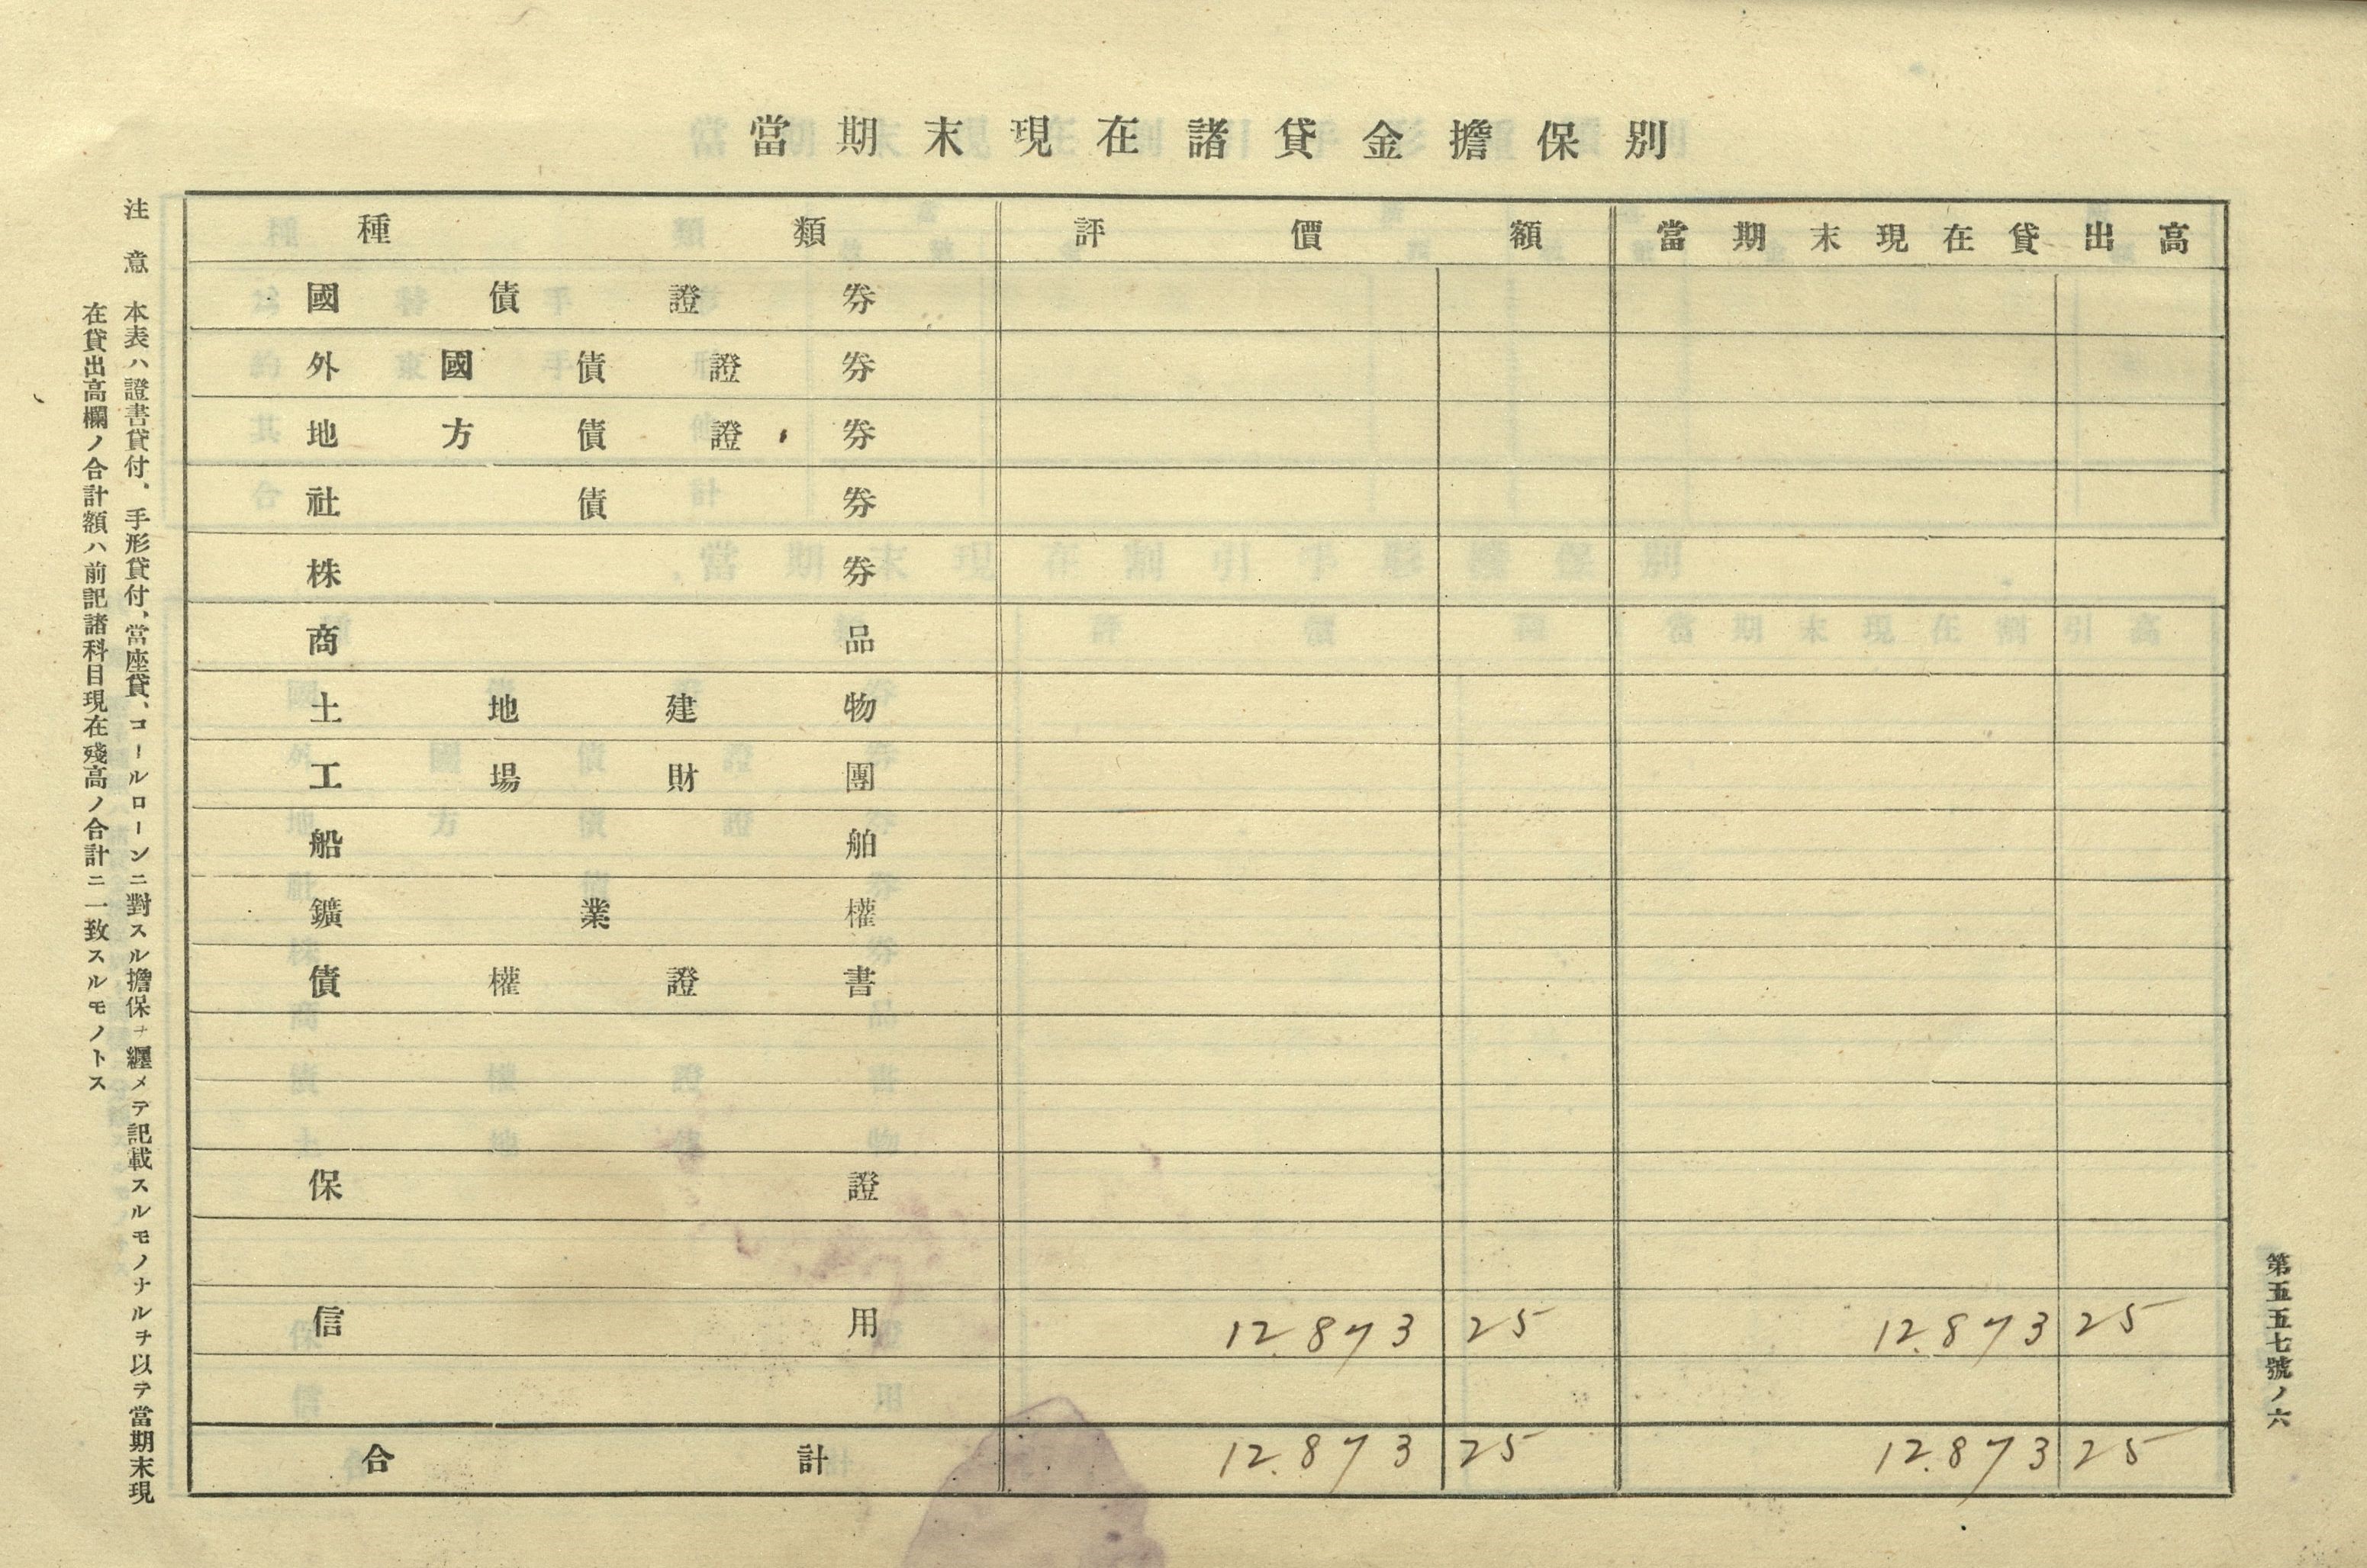 當期末現在諸貸金擔保別
種類 評價額 當期末現在貸出高
國債證券
外國債證券
地方債證券
社債券
株券
商品
土地建物
工場財團
船舶
鑛業權
債權證書
保證
信用 12.873 25 12.873 25
合計 12.873 25 12.873 25
第五五七號ノ六
注意 本表ハ證書貸付、手形貸付、當座貸、コールローンニ對スル擔保ヲ纒メテ記載スルモノナルヲ以テ當期末現
在貸出高欄ノ合計額ハ前記諸科目現在殘高ノ合計ニ一致スルモノトス